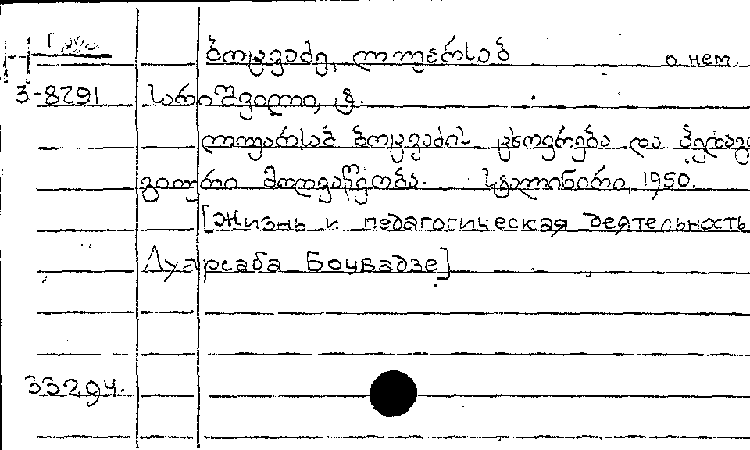 ბოცვაძე, ლუარსაბ о нем.
3-8291 სარიშვილი, ტ.
ლუარსაბ ბოცვაძის ცხოვრება და პედაგო
გიური მოღვაწეობა. სტალინირი, 1950.
[Жизнь и педагогическая деятельность
Луарсаба Боцвадзе]
33294.